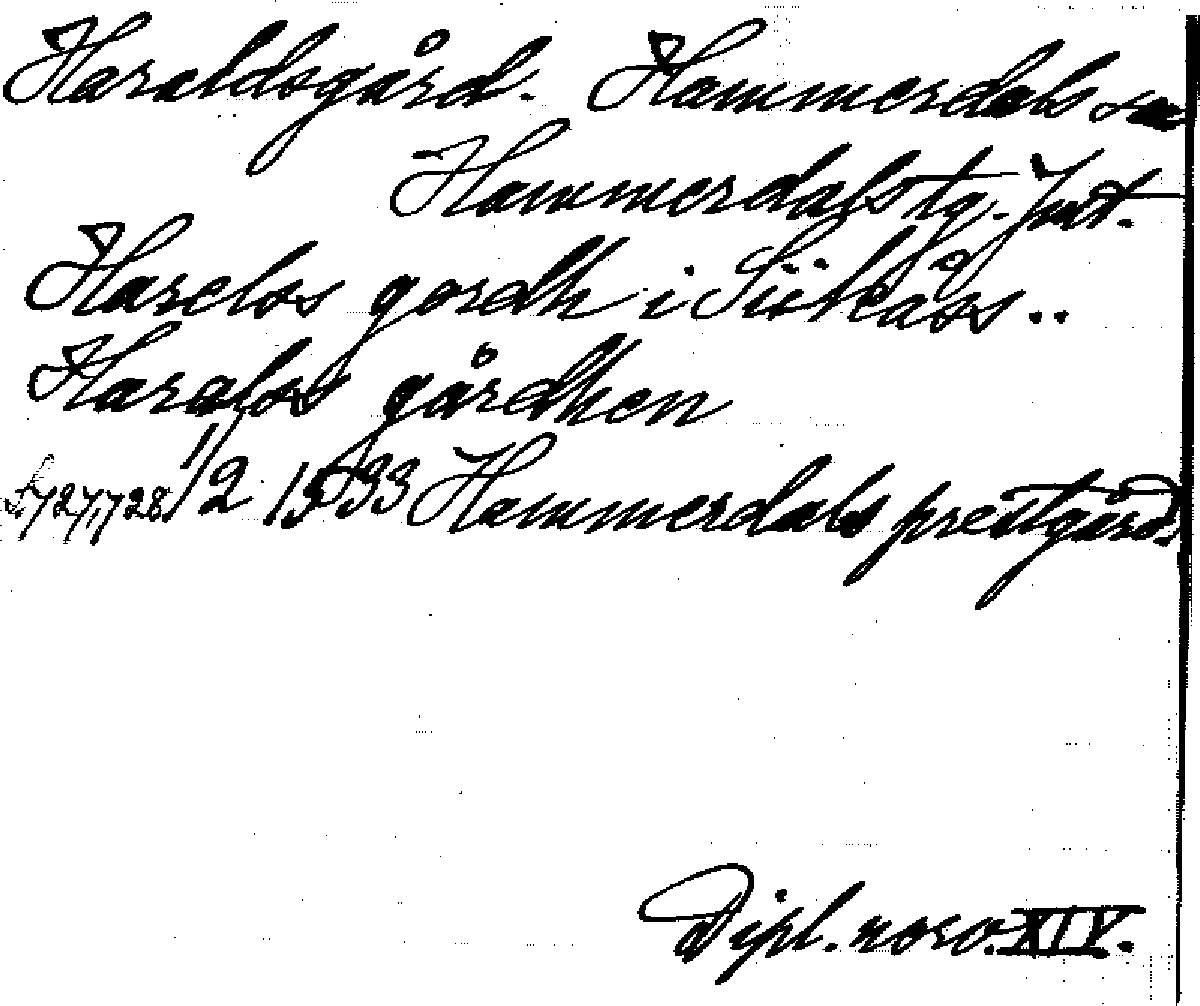 Haraldsgård. Hammerdals sn
Hammerdals tg. Jmt.
Harclos gordh i Sükåss..
Haralss gårdhen
S. 727, 728. 1/2 1533 Hammerdals prestgård.
Dipl. norv. XIV.